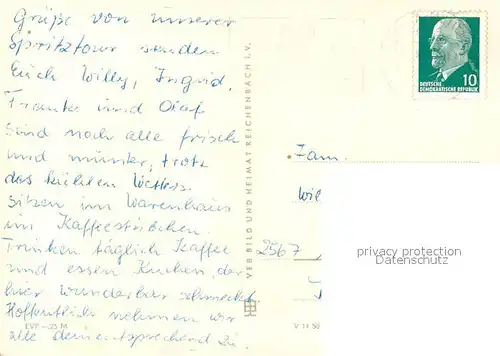 Grüße von unserer
Spritztour senden
Euch Willy, Ingrid,
Frauke und Olaf
Sind noch alle frisch
und munter, trotz
des kühlen Wetters.
Sitzen im Warenhaus
im Kaffeestübchen.
Trinken täglich Kaffee
und essen Kuchen, der
hier wunderbar schmeckt.
Hoffentlich nehmen wir
alle dementsprechend zu.
EVP -,25 M
VEB BILD UND HEIMAT REICHENBACH i. V.
10
DEUTSCHE
DEMOKRATISCHE REPUBLIK
Fam.
Wil
2567
privacy protection
Datenschutz
V 11 50